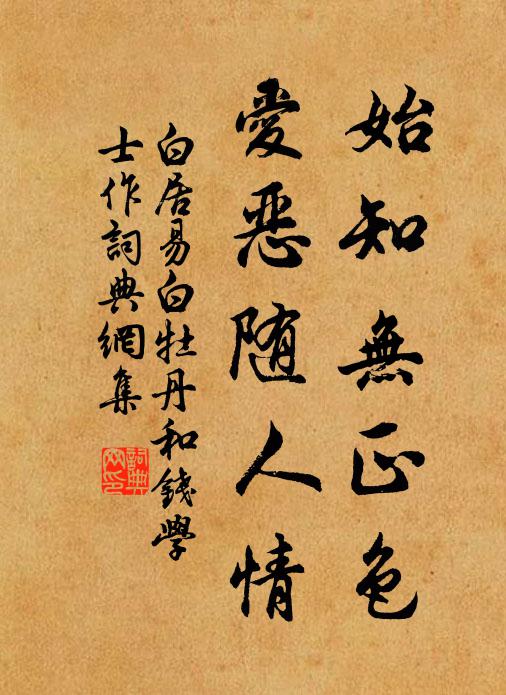 始知無正色
愛惡随人情
白居易白牡丹和錢學
士作詞典網集
詞典網印